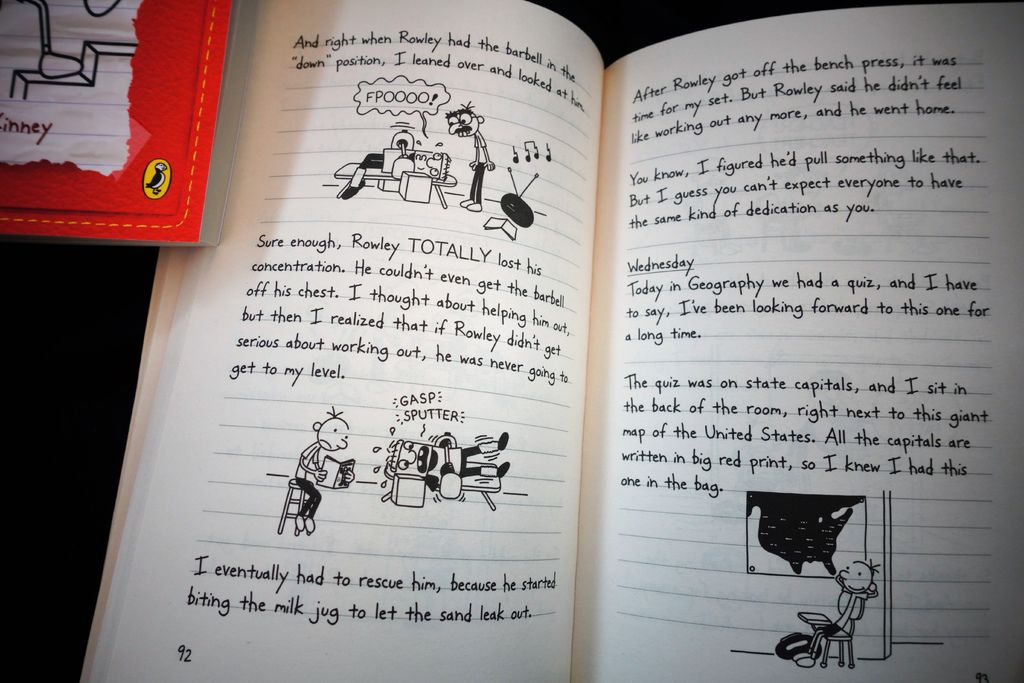 Kinney
And right when Rowley had the barbell in the
"down" position, I leaned over and looked at him.
FPOOOO!
Sure enough, Rowley TOTALLY lost his
concentration. He couldn't even get the barbell
off his chest. I thought about helping him out,
but then I realized that if Rowley didn't get
serious about working out, he was never going to
get to my level.
GASP
SPUTTER
I eventually had to rescue him, because he started
biting the milk jug to let the sand leak out.
92
After Rowley got off the bench press, it was
time for my set. But Rowley said he didn't feel
like working out any more, and he went home.
You know, I figured he'd pull something like that.
But I guess you can't expect everyone to have
the same kind of dedication as you.
Wednesday
Today in Geography we had a quiz, and I have
to say, I've been looking forward to this one for
a long time.
The quiz was on state capitals, and I sit in
the back of the room, right next to this giant
map of the United States. All the capitals are
written in big red print, so I knew I had this
one in the bag.
93